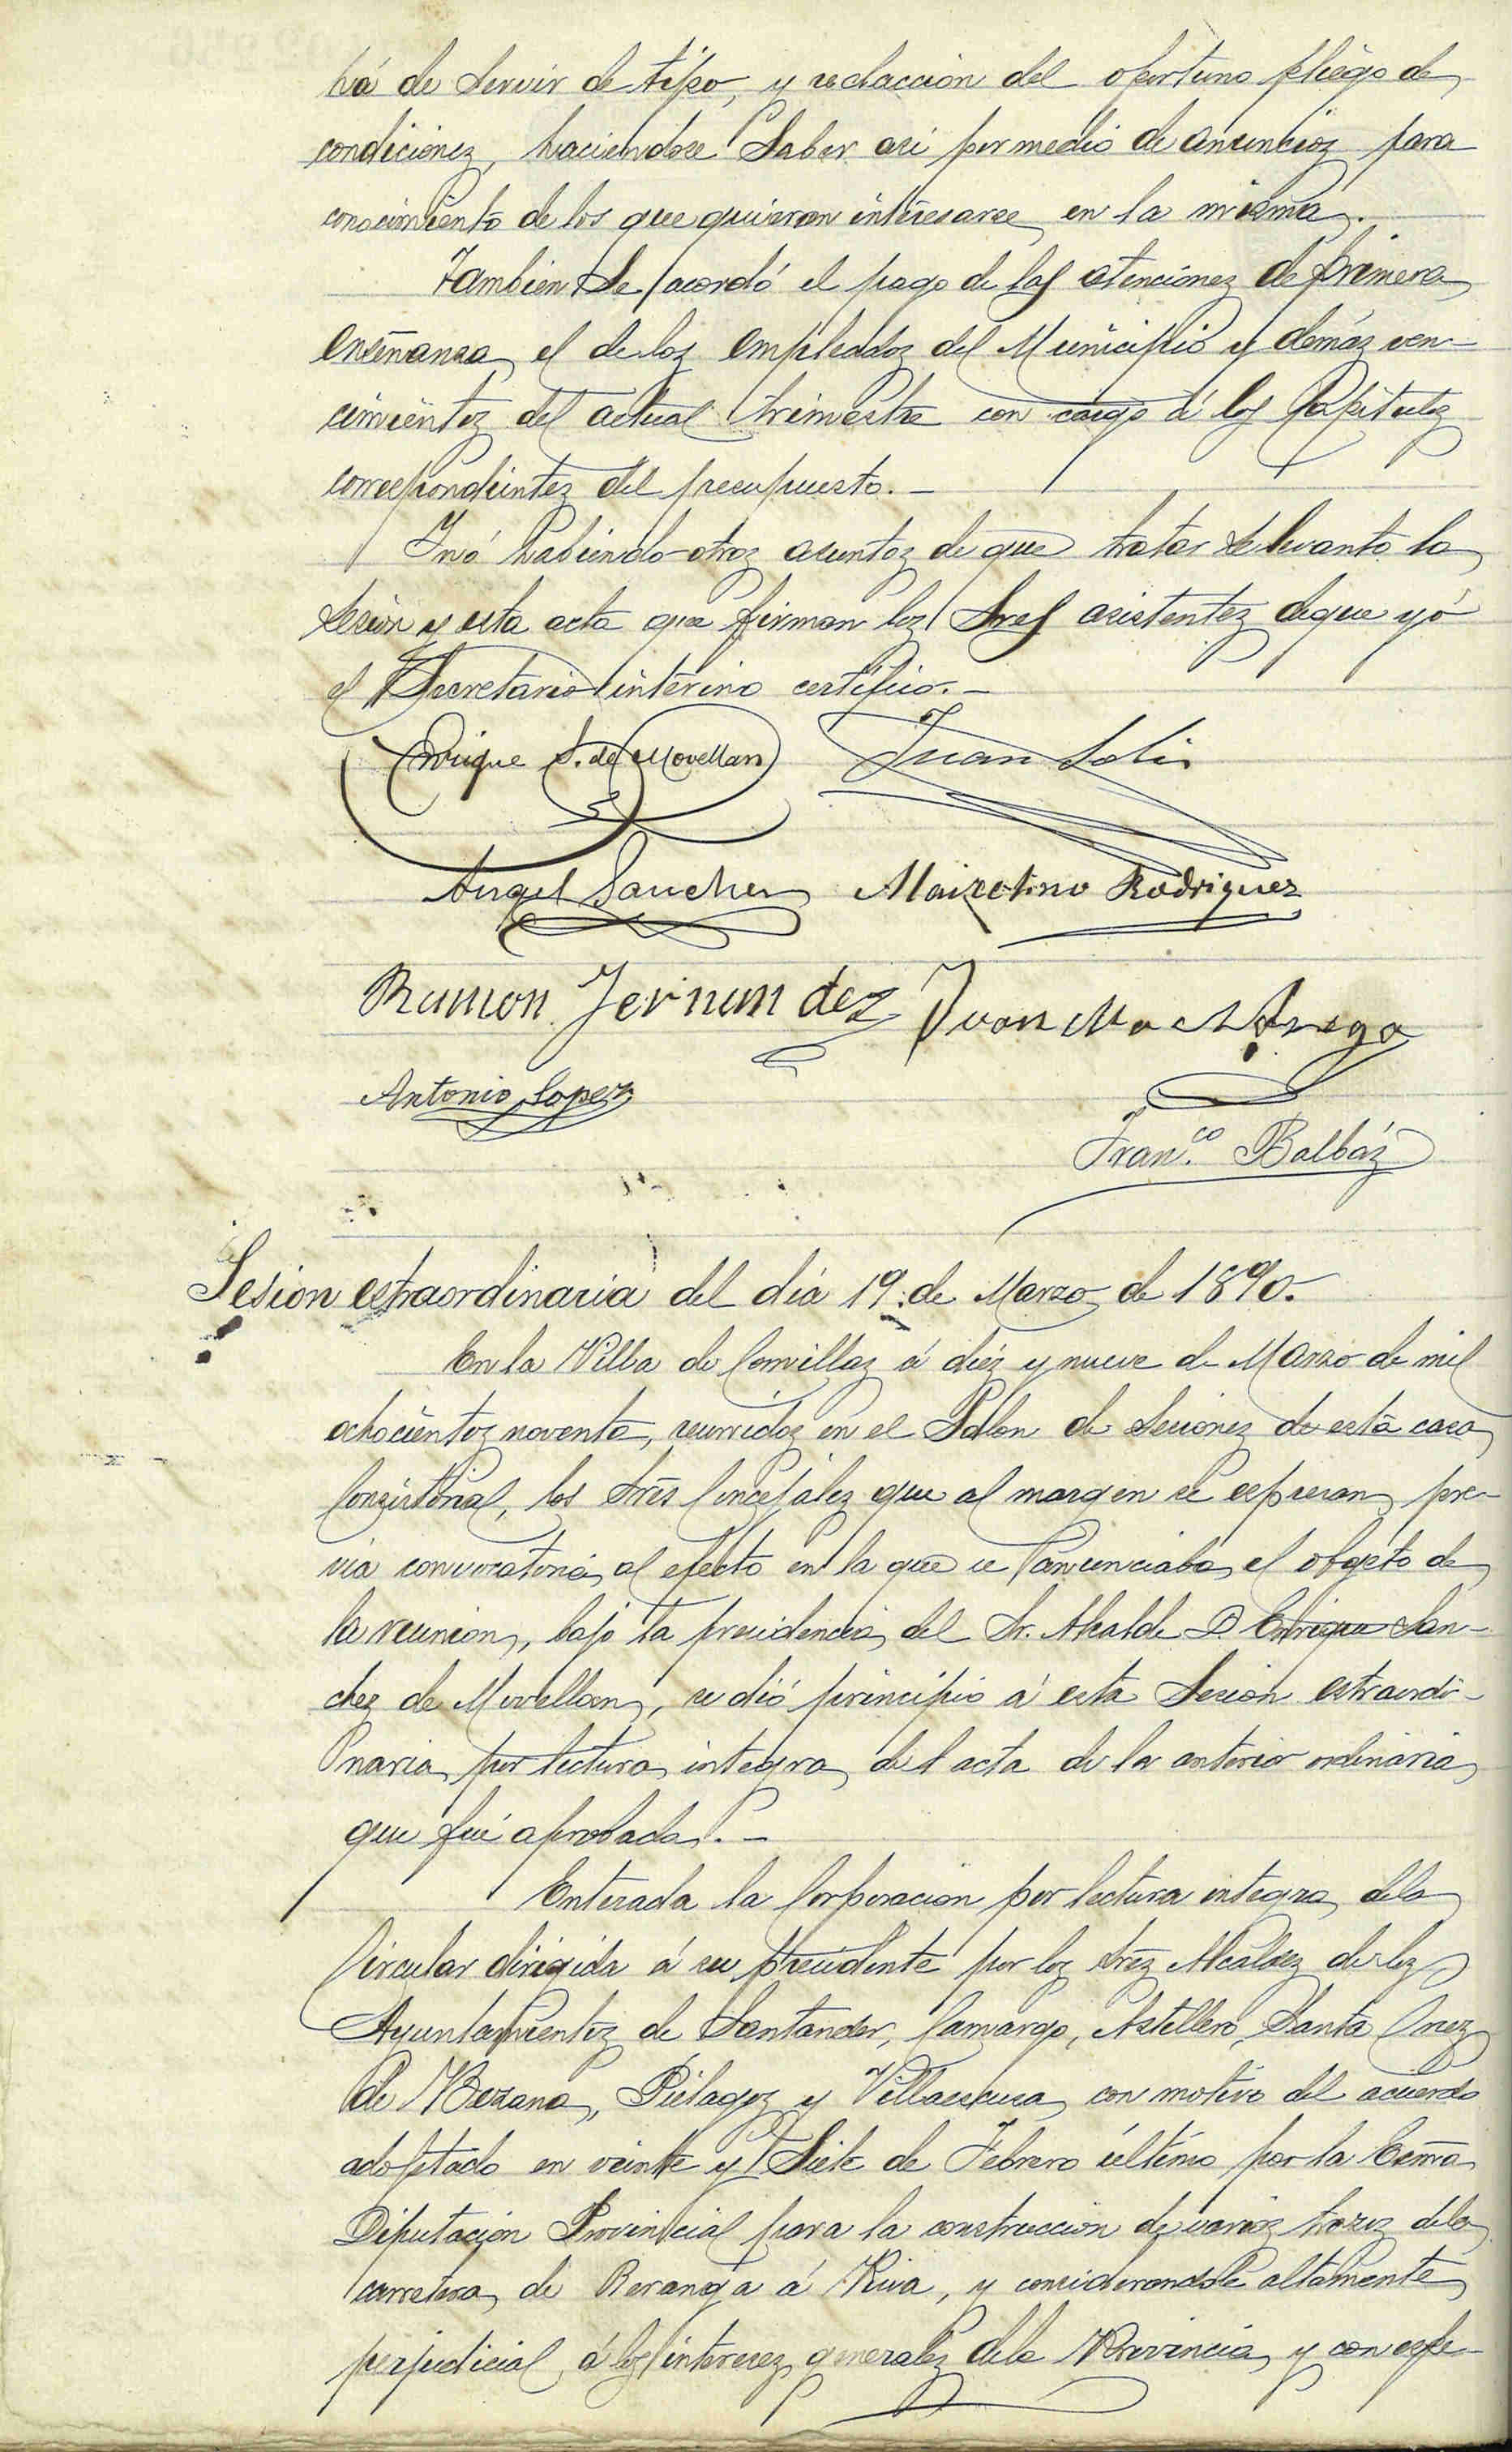 há de servir de tipo, y redaccion del oportuno pliego de
condiciones, haciendose saber asi por medio de anuncios para
conocimiento de los que quieran interesarse en la misma.
Tambien se acordó el pago de las atenciones de primera
enseñanza, el de los empleados del Municipio y demás ven-
cimientos del actual trimestre con cargo á los Capitulos
correspondientes del presupuesto.-
Y nó habiendo otros asuntos de que tratar se levantó la
sesion y esta acta que firman los Sres asistentes de que yó
el Secretario interino certifico.-
Enrique S. de Movellan Juan Solis
Angel Sanchez Marcelino Rodriguez
Ramon Fernandez Juan Ma Noriega
Antonio Lopez
Fran.co Balbáz
Sesion estraordinaria del dia 19 de Marzo de 1890.
En la Villa de Comillas á diez y nueve de Marzo de mil
ochocientos noventa, reunidos en el Salon de Sesiones de esta casa
Consistorial, los Sres Concejales que al margen se espresan, pre-
via convocatoria al efecto en la que se anunciaba el objeto de
la reunion, bajo la presidencia del Sr. Alcalde D. Enrique San-
chez de Movellan, se dió principio á esta Sesion estraordi-
naria por lectura integra del acta de la anterior ordinaria
que fué aprobada.-
Enterada la Corporacion por lectura integra de la
Circular dirigida á su presidente por los Sres Alcaldes de los
Ayuntamientos de Santander, Camargo, Astillero, Santa Cruz
de Bezana, Piélagos y Villaescusa, con motivo del acuerdo
adoptado en veinte y Siete de Febrero último por la Excma
Diputacion Provincial para la construccion de varios trozos de la
carretera de Beranga á Riva, y considerandole altamente
perjudicial á los intereses generales de la Provincia, y con espe-